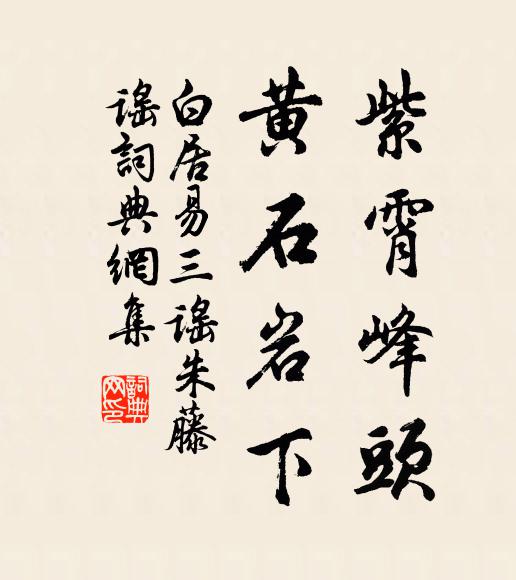 紫霄峰頭
黃石岩下
白居易三謠朱藤
謠詞典網集
詞典
网印